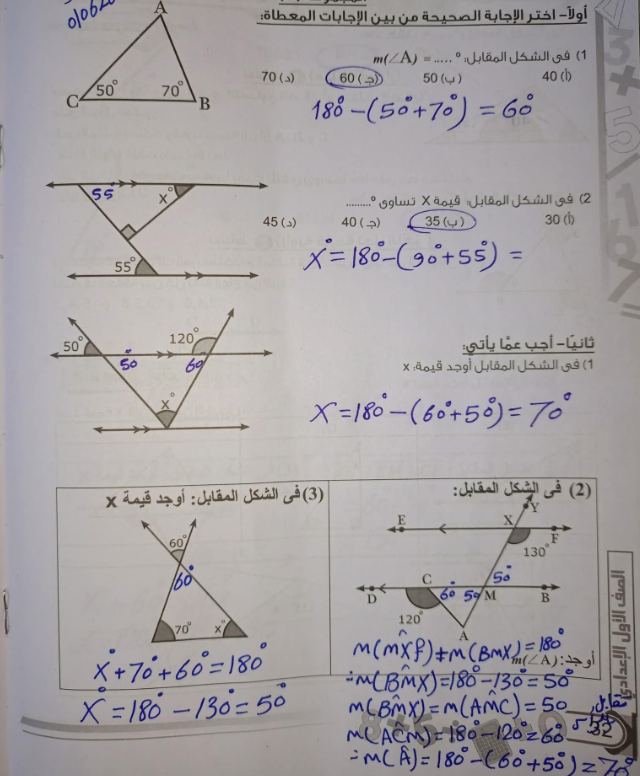 أولاً- اختر الإجابة الصحيحة من بين الإجابات المعطاة:
1) فى الشكل المقابل: m(∠A) = ..... °
(أ) 40 (ب) 50 (جـ) 60 (د) 70
A
50° 70°
C B
180° - (50° + 70°) = 60°
2) فى الشكل المقابل: قيمة X تساوى .........°
(أ) 30 (ب) 35 (جـ) 40 (د) 45
55 x°
55°
X° = 180° - (90° + 55°) =
ثانيًا- أجب عمّا يأتي:
1) فى الشكل المقابل أوجد قيمة: x
50° 120°
50 60
x°
X = 180° - (60° + 50°) = 70°
(2) فى الشكل المقابل:
Y
E X F
130°
50°
C 60 50
D M B
120°
A
أوجد: m(∠A)
m(MXF) + m(BMX) = 180°
∴ m(BMX) = 180° - 130° = 50°
m(BMX) = m(AMC) = 50
m(ACM) = 180° - 120° = 60°
∴ m(Â) = 180° - (60° + 50°) = 70°
(3) فى الشكل المقابل: أوجد قيمة x
60°
60°
70° x°
X° + 70° + 60° = 180°
X° = 180° - 130° = 50°
الصف الأول الإعدادي
32